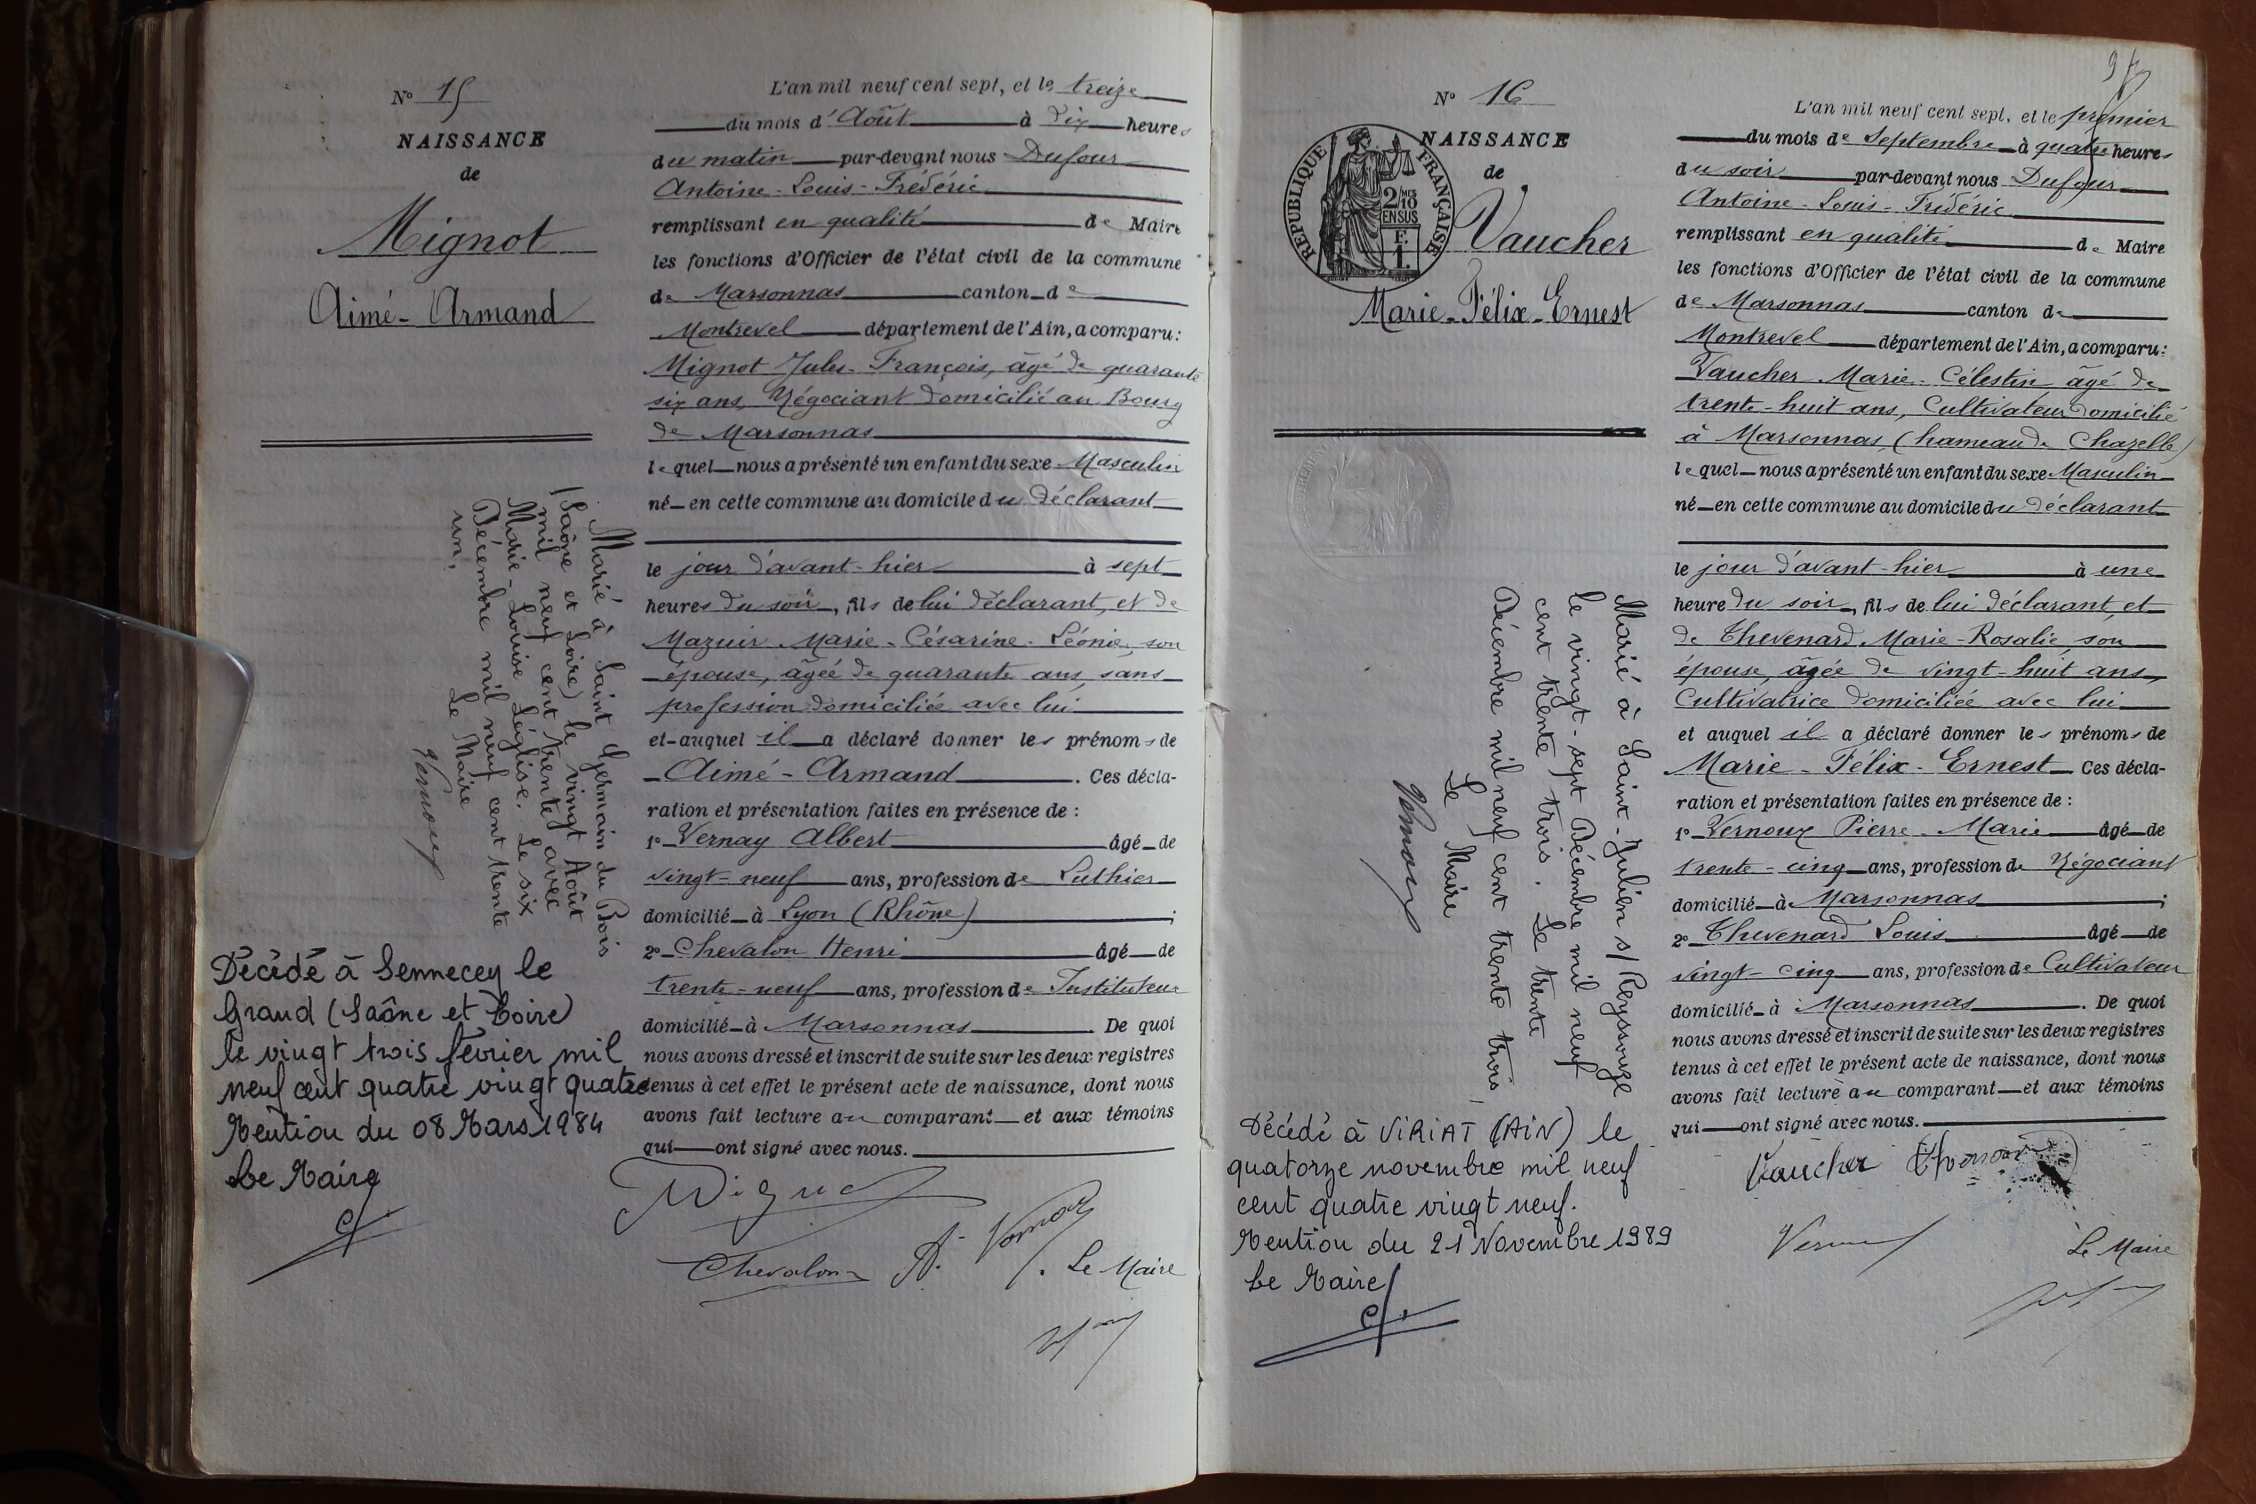 N° 15
NAISSANCE
de
Mignot
Aimé - Armand
Marié à Saint Germain du Bois
(Saône et Loire) le vingt Août
mil neuf cent trente avec
Marie-Louise Léglise. Le six
Décembre mil neuf cent trente
un.
Le Maire
Décédé à Sennecey le
Grand (Saône et Loire)
le vingt trois février mil
neuf cent quatre vingt quatre
Mention du 08 Mars 1984
Le Maire
L'an mil neuf cent sept, et le treize
du mois d'Août à dix heures
du matin par-devant nous Dufour
Antoine - Louis - Frédéric
remplissant en qualité de Maire
les fonctions d'Officier de l'état civil de la commune
de Marsonnas canton de
Montrevel département de l'Ain, a comparu :
Mignot Jules - François, âgé de quarante
six ans, Négociant domicilié au Bourg
de Marsonnas
lequel nous a présenté un enfant du sexe Masculin
né en cette commune au domicile du déclarant
le jour d'avant-hier à sept
heures du soir, fils de lui déclarant, et de
Mazuir Marie - Césarine - Léonie, son
épouse, âgée de quarante ans, sans
profession domiciliée avec lui
et auquel il a déclaré donner les prénoms de
Aimé - Armand. Ces décla-
ration et présentation faites en présence de :
1° Vernay Albert âgé de
vingt-neuf ans, profession de Luthier
domicilié à Lyon (Rhône) ;
2° Chevalon Henri âgé de
trente-neuf ans, profession de Instituteur
domicilié à Marsonnas. De quoi
nous avons dressé et inscrit de suite sur les deux registres
tenus à cet effet le présent acte de naissance, dont nous
avons fait lecture au comparant et aux témoins
qui ont signé avec nous.
Mignot
A. Vernay
Chevalon
Le Maire
N° 16
NAISSANCE
de
RÉPUBLIQUE FRANÇAISE
2/10 MES
EN SUS
F.
1.
Vaucher
Marie - Félix - Ernest
Marié à Saint-Julien s/ Reyssouze
le vingt-sept Décembre mil neuf
cent trente trois. Le trente
Décembre mil neuf cent trente trois
Le Maire
Décédé à VIRIAT (AIN) le
quatorze novembre mil neuf
cent quatre vingt neuf.
Mention du 21 Novembre 1989
Le Maire
L'an mil neuf cent sept, et le premier
du mois de Septembre à quatre heures
du soir par-devant nous Dufour
Antoine - Louis - Frédéric
remplissant en qualité de Maire
les fonctions d'Officier de l'état civil de la commune
de Marsonnas canton de
Montrevel département de l'Ain, a comparu :
Vaucher Marie - Célestin âgé de
trente-huit ans, Cultivateur domicilié
à Marsonnas, (hameau de Chazelle)
lequel nous a présenté un enfant du sexe Masculin
né en cette commune au domicile du déclarant
le jour d'avant-hier à une
heure du soir, fils de lui déclarant, et
de Thevenard Marie-Rosalie son
épouse, âgée de vingt-huit ans,
Cultivatrice domiciliée avec lui
et auquel il a déclaré donner les prénoms de
Marie - Félix - Ernest Ces décla-
ration et présentation faites en présence de :
1° Vernoux Pierre - Marie âgé de
trente-cinq ans, profession de Négociant
domicilié à Marsonnas ;
2° Thevenard Louis âgé de
vingt-cinq ans, profession de Cultivateur
domicilié à Marsonnas. De quoi
nous avons dressé et inscrit de suite sur les deux registres
tenus à cet effet le présent acte de naissance, dont nous
avons fait lecture au comparant et aux témoins
qui ont signé avec nous.
Vaucher
Le Maire